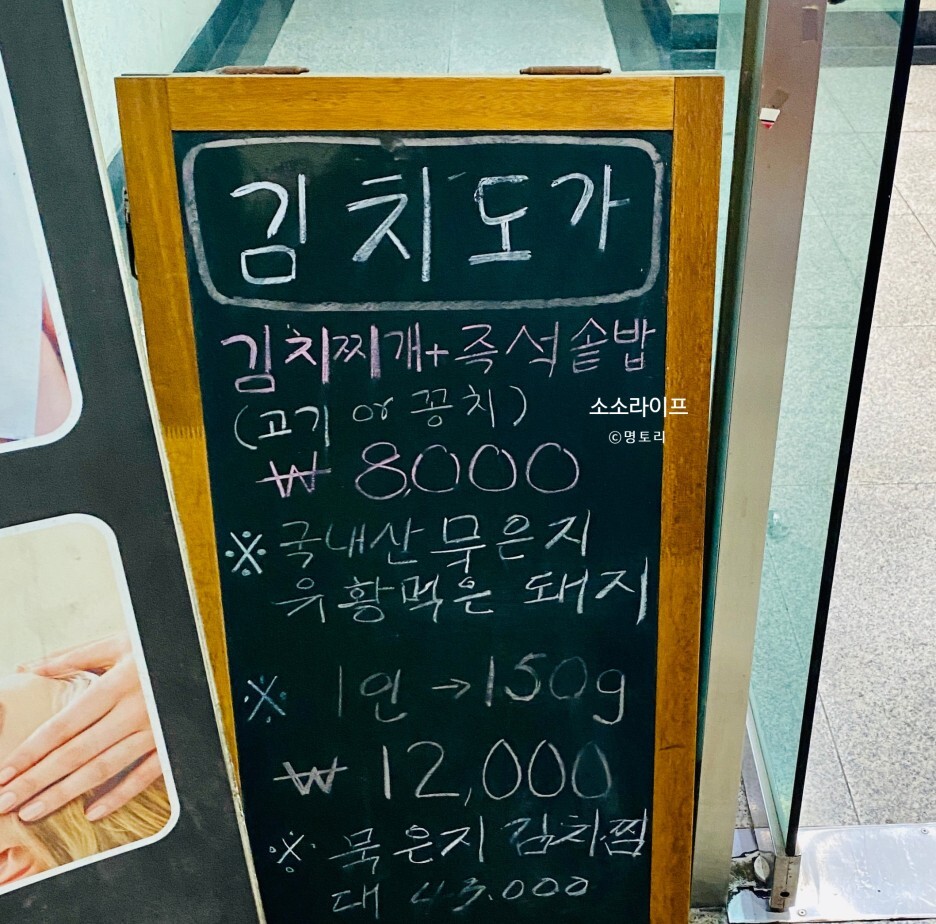 김치도가
김치찌개+즉석솥밥
(고기 or 꽁치)
소소라이프
©명토리
₩ 8,000
※ 국내산 묵은지
유황먹은 돼지
※ 1인 → 150g
₩ 12,000
※ 묵은지 김치찜
대 43.000